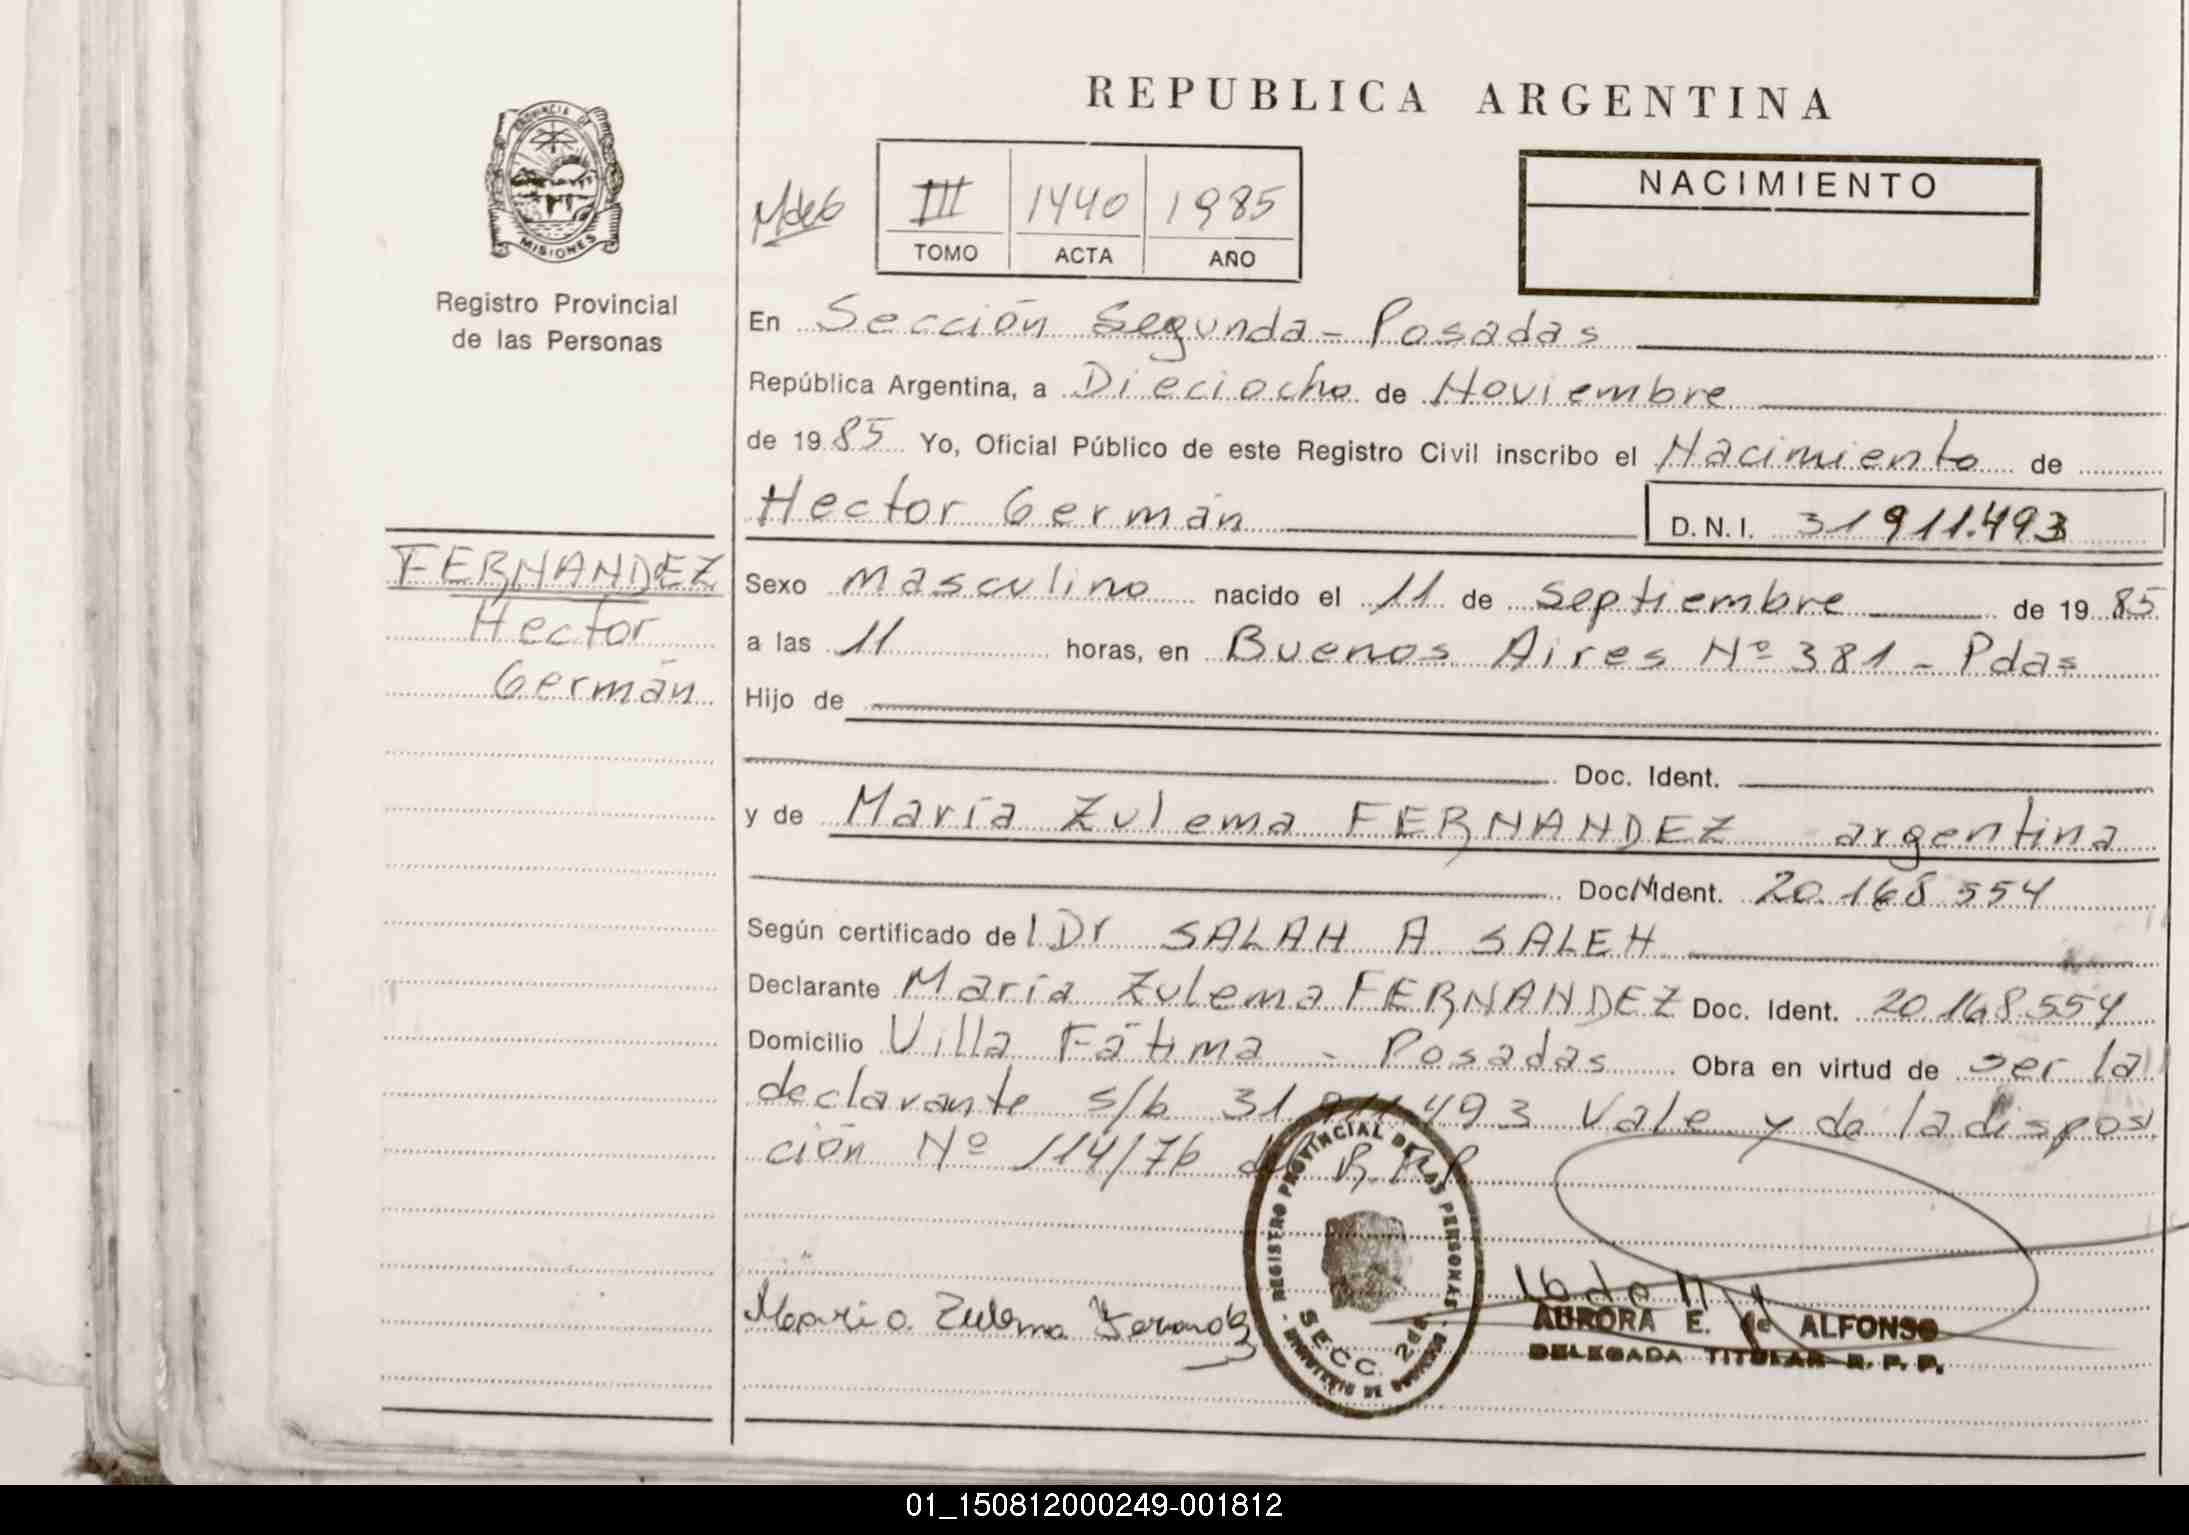 PROVINCIA DE
MISIONES
Registro Provincial
de las Personas
FERNANDEZ
Hector
Germán
REPUBLICA ARGENTINA
III 1440 1985
TOMO ACTA AÑO
NACIMIENTO
En Sección Segunda - Posadas
República Argentina, a Dieciocho de Noviembre
de 1985 Yo, Oficial Público de este Registro Civil inscribo el Nacimiento de
Hector Germán D.N.I. 31911.493
Sexo masculino nacido el 11 de Septiembre de 1985
a las 11 horas, en Buenos Aires Nº 381 - Pdas
Hijo de
Doc. Ident.
y de María Zulema FERNANDEZ argentina
Doc. Ident. 20.168.554
Según certificado del Dr SALAH A SALEH
Declarante María Zulema FERNANDEZ Doc. Ident. 20.168.554
Domicilio Villa Fátima - Posadas Obra en virtud de ser la
declarante s/b 31.911.493 Vale y de la disposi
ción Nº 114/76 del R.P.P
REGISTRO PROVINCIAL DE LAS PERSONAS
SECC. 2da
Maria Zulema Fernandez
AURORA E. de ALFONSO
DELEGADA TITULAR R.P.P.
01_150812000249-001812